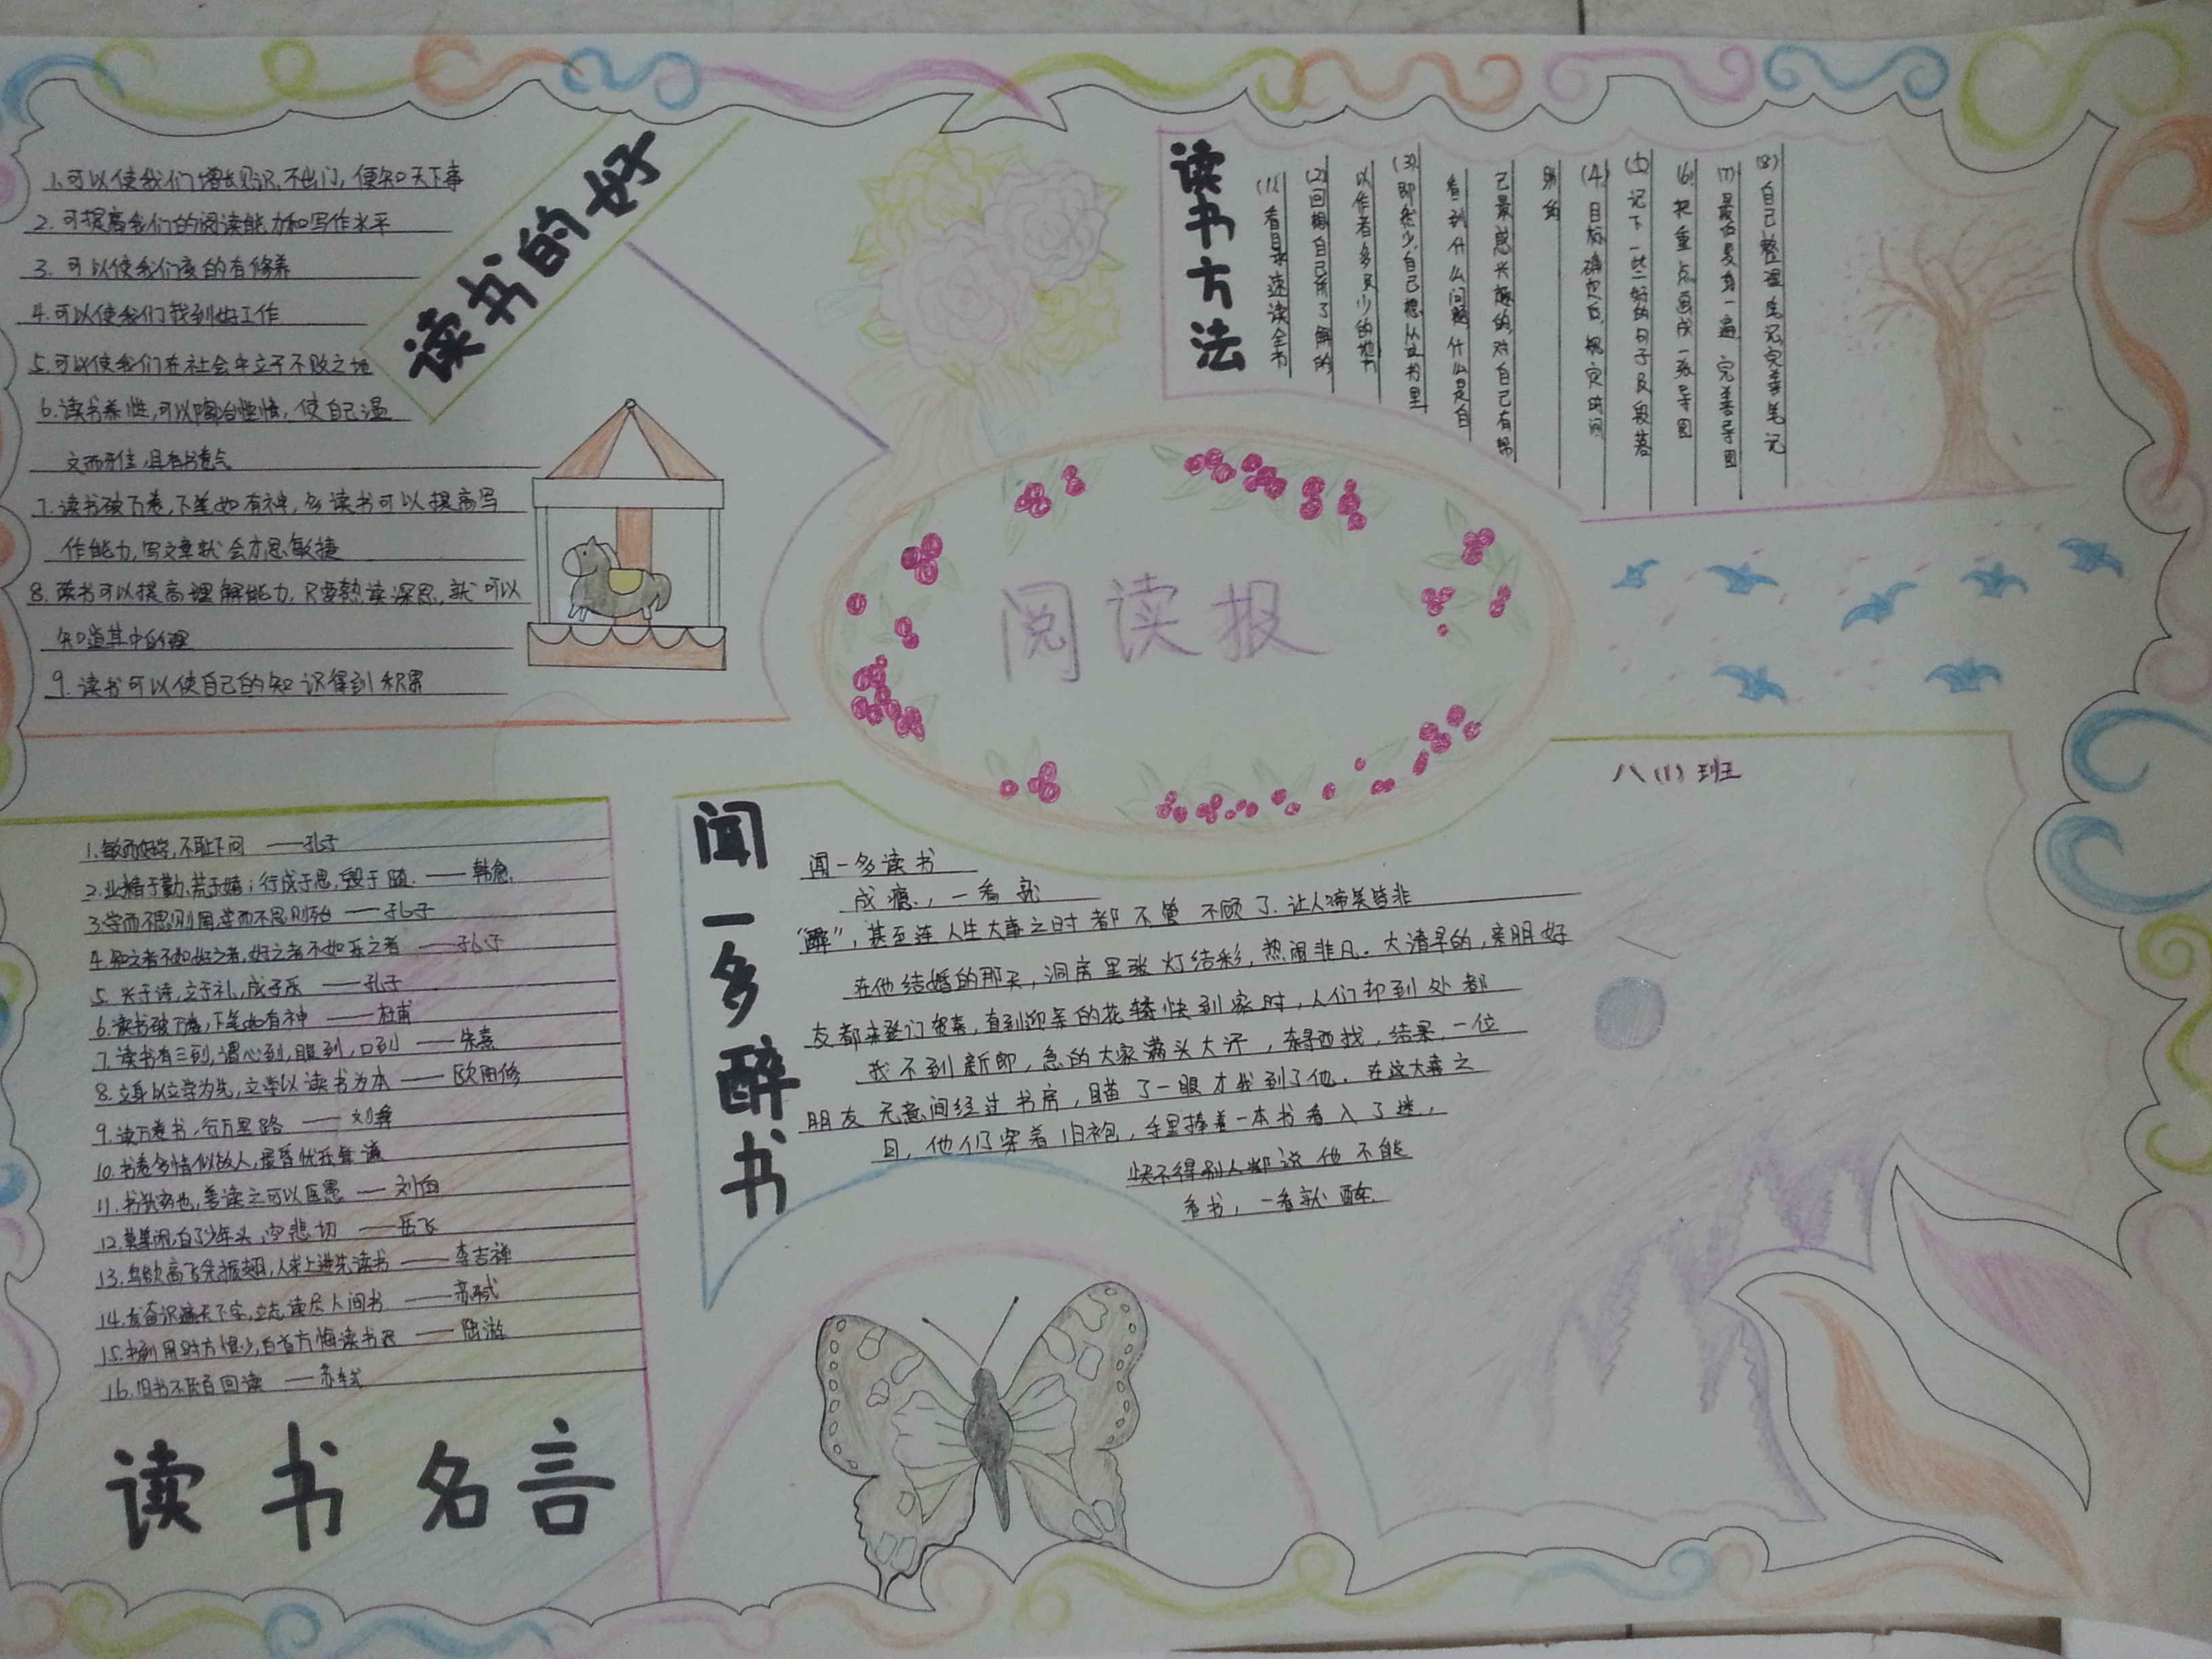 读书的好
1.可以使我们增长见识,不出门,便知天下事
2.可提高我们的阅读能力和写作水平
3.可以使我们变的有修养
4.可以使我们找到好工作
5.可以使我们在社会中立于不败之地
6.读书养性,可以陶冶性情,使自己温
文而牙佳,具有书卷气
7.读书破万卷,下笔如有神,多读书可以提高写
作能力,写文章就会才思敏捷
8.读书可以提高理解能力,只要熟读深思,就可以
知道其中的理
9.读书可以使自己的知识得到积累
读书方法
(1)看目录速读全书
(2)回想自己所了解的
以作者多见少的地书
(3)即然少,自己想从这书里
看到什么问题什么是自
己最感兴趣的,对自己有帮
助的
(4)目标确定后,规定时间
(5)记下一些好的句子及段落
(6)把重点画成一张导图
(7)最后复身一遍,完善导图
(8)自己整理笔记完善笔记
阅读报
八(1)班
1.敏而好学,不耻下问 ——孔子
2.业精于勤,荒于嬉;行成于思,毁于随. ——韩愈.
3.学而不思则罔,学而不思则殆 ——孔子
4.知之者不如好之者,好之者不如乐之者 ——孔子
5.兴于诗,立于礼,成于乐 ——孔子
6.读书破万卷,下笔如有神 ——杜甫
7.读书有三到,谓心到,眼到,口到 ——朱熹
8.立身以立学为先,立学以读书为本 ——欧阳修
9.读万卷书,行万里路 ——刘彝
10.书卷多情似故人,晨昏忧乐每
11.书犹药也,善读之可以医愚 ——刘向
12.莫等闲,白了少年头,空悲切 ——岳飞
13.鸟欲高飞先振翅,人求上进先读书 ——李苦禅
14.发奋识遍天下字,立志读尽人间书 ——苏轼
15.书到用时方恨少,白首方悔读书迟 ——陆游
16.旧书不厌百回读 ——苏轼
读书名言
闻一多醉书
闻一多读书
成瘾.,一看就
“醉”,甚至连人生大事之时都不管不顾了.让人啼笑皆非
在他结婚的那天,洞房里张灯结彩,热闹非凡。大清早的,亲朋好
友都来登门贺喜,直到迎亲的花轿快到家时,人们却到处都
找不到新郎,急的大家满头大汗,东寻西找,结果,一位
朋友无意间经过书房,瞄了一眼才找到了他.在这大喜之
日,他仍穿着旧袍,手里捧着一本书看入了迷,
怏不得别人都说他不能
看书,一看就醉.